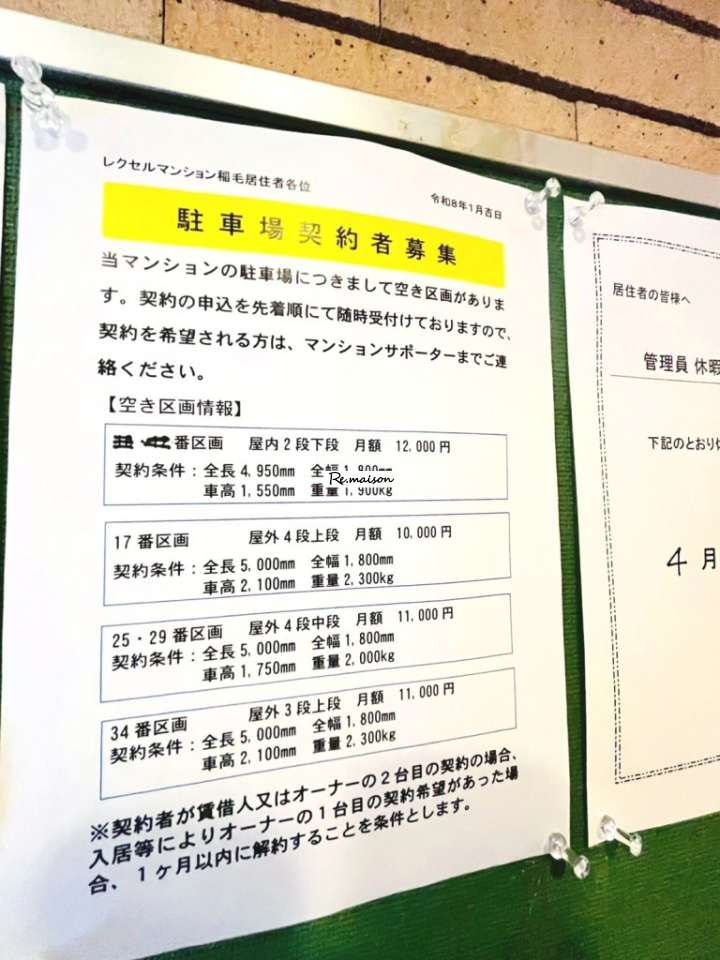 レクセルマンション稲毛居住者各位
令和8年1月吉日
駐車場契約者募集
当マンションの駐車場につきまして空き区画がありま
す。契約の申込を先着順にて随時受付けておりますので、
契約を希望される方は、マンションサポーターまでご連
絡ください。
【空き区画情報】
番区画 屋内2段下段 月額 12,000円
契約条件：全長4,950mm 全幅1,800mm
車高1,550mm 重量1,900kg
Re.maison
17番区画 屋外4段上段 月額 10,000円
契約条件：全長5,000mm 全幅1,800mm
車高2,100mm 重量2,300kg
25・29番区画 屋外4段中段 月額 11,000円
契約条件：全長5,000mm 全幅1,800mm
車高1,750mm 重量2,000kg
34番区画 屋外3段上段 月額 11,000円
契約条件：全長5,000mm 全幅1,800mm
車高2,100mm 重量2,300kg
※契約者が賃借人又はオーナーの2台目の契約の場合、
入居等によりオーナーの1台目の契約希望があった場
合、1ヶ月以内に解約することを条件とします。
居住者の皆様へ
管理員 休暇
下記のとおり休
4月